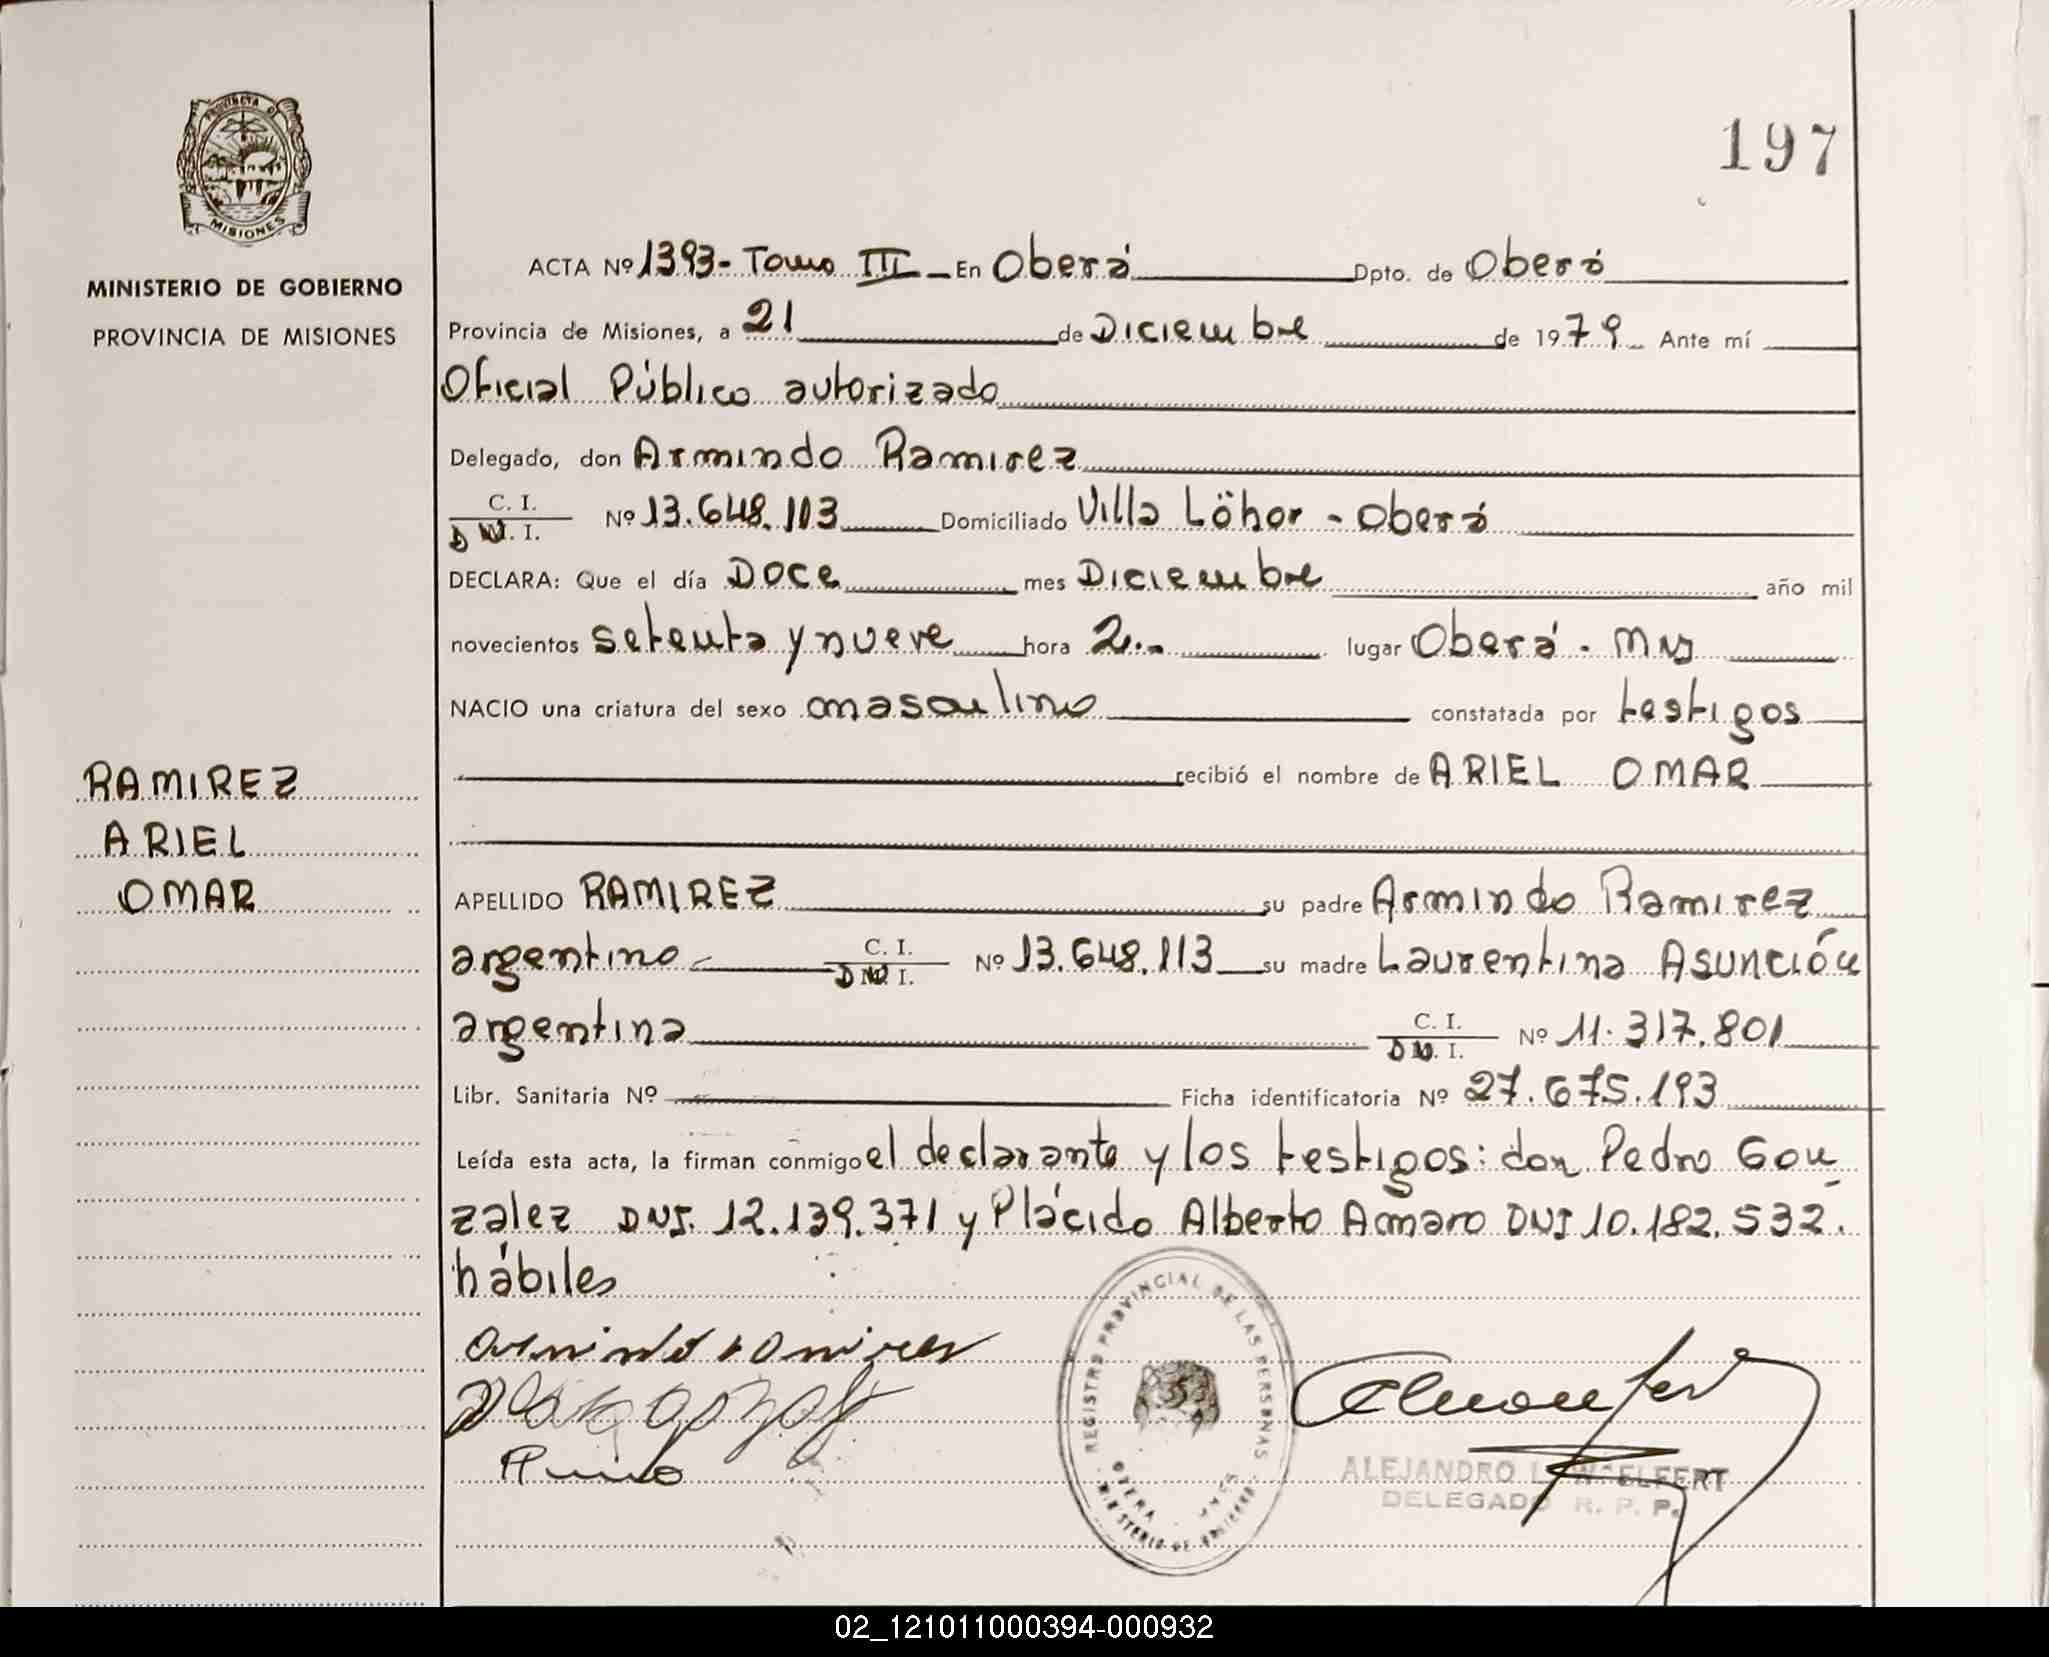 PROVINCIA DE
MISIONES
MINISTERIO DE GOBIERNO
PROVINCIA DE MISIONES
197
ACTA Nº 1393- Tomo III - En Oberá Dpto. de Oberá
Provincia de Misiones, a 21 de Diciembre de 1979 Ante mí
Oficial Público autorizado
Delegado, don Armindo Ramirez
C. I.
DN. I. Nº 13.648.113 Domiciliado Villa Löhor - Oberá
DECLARA: Que el día Doce mes Diciembre año mil
novecientos setenta y nueve hora 2.- lugar Oberá - Mns
NACIO una criatura del sexo masculino constatada por testigos
recibió el nombre de ARIEL OMAR
RAMIREZ
ARIEL
OMAR
APELLIDO RAMIREZ su padre Armindo Ramirez
argentino C. I.
DN. I. Nº 13.648.113 su madre Laurentina Asunción
argentina C. I.
DN. I. Nº 11.317.801
Libr. Sanitaria Nº Ficha identificatoria Nº 27.675.193
Leída esta acta, la firman conmigo el declarante y los testigos: don Pedro Gon
zalez DNI. 12.139.371 y Plácido Alberto Amaro DNI 10.182.532.
hábiles
armindo ramirez
REGISTRO PROVINCIAL DE LAS PERSONAS
OBERA MNES
MINISTERIO DE GOBIERNO
ALEJANDRO L. WOELFERT
DELEGADO R. P. P.
02_121011000394-000932